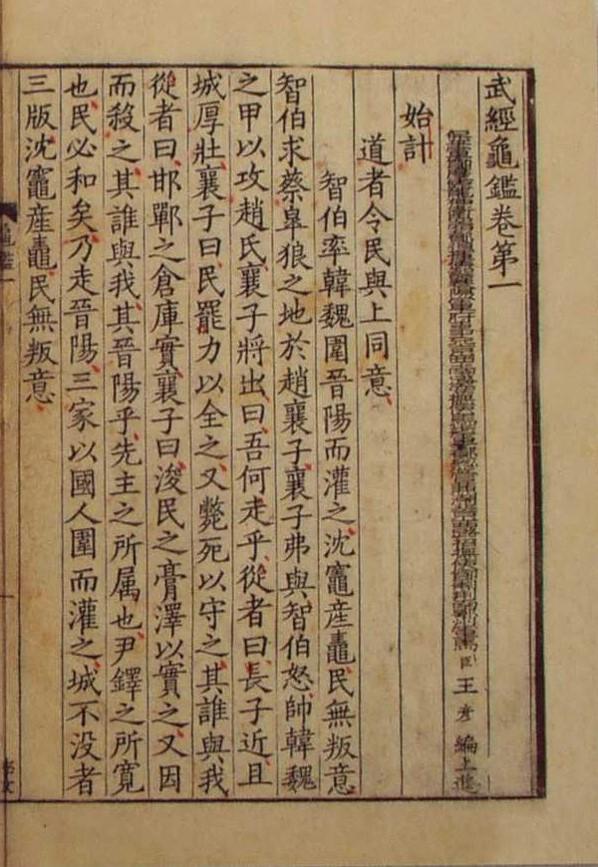 武經龜鑑卷第一
臣王彥編上進
始計
道者令民與上同意
智伯率韓魏圍晉陽而灌之沈竈産鼃民無叛意
智伯求蔡皐狼之地於趙襄子襄子弗與智伯怒帥韓魏
之甲以攻趙氏襄子將出曰吾何走乎從者曰長子近且
城厚壯襄子曰民罷力以全之又斃死以守之其誰與我
從者曰邯鄲之倉庫實襄子曰浚民之膏澤以實之又因
而殺之其誰與我其晉陽乎先主之所属也尹鐸之所寛
也民必和矣乃走晉陽三家以國人圍而灌之城不没者
三版沈竈産鼃民無叛意